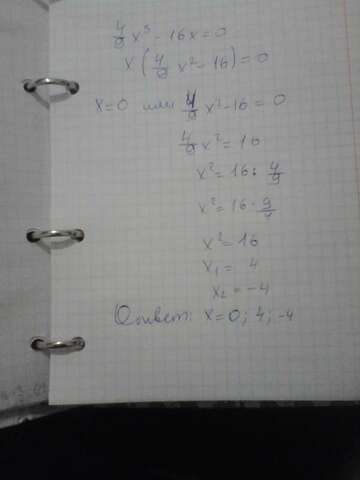 4/9 x³ - 16x = 0
x (4/9 x² - 16) = 0
x = 0 или 4/9 x² - 16 = 0
4/9 x² = 16
x² = 16 : 4/9
x² = 16 · 9/4
x² = 16
x₁ = 4
x₂ = -4
Ответ: x = 0; 4; -4